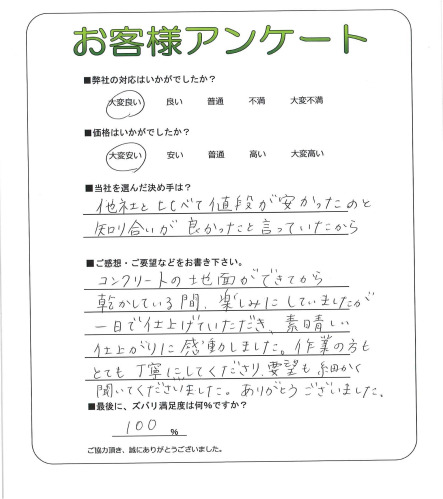 お客様アンケート
■弊社の対応はいかがでしたか？
大変良い 良い 普通 不満 大変不満
■価格はいかがでしたか？
大変安い 安い 普通 高い 大変高い
■当社を選んだ決め手は？
他社と比べて値段が安かったのと
知り合いが良かったと言っていたから
■ご感想・ご要望などをお書き下さい。
コンクリートの地面ができてから
乾かしている間、楽しみにしていましたが
一日で仕上げていただき、素晴しい
仕上がりに感動しました。作業の方も
とても丁寧にしてくださり、要望も細かく
聞いてくださいました。ありがとうございました。
■最後に、ズバリ満足度は何％ですか？
100 ％
ご協力頂き、誠にありがとうございました。